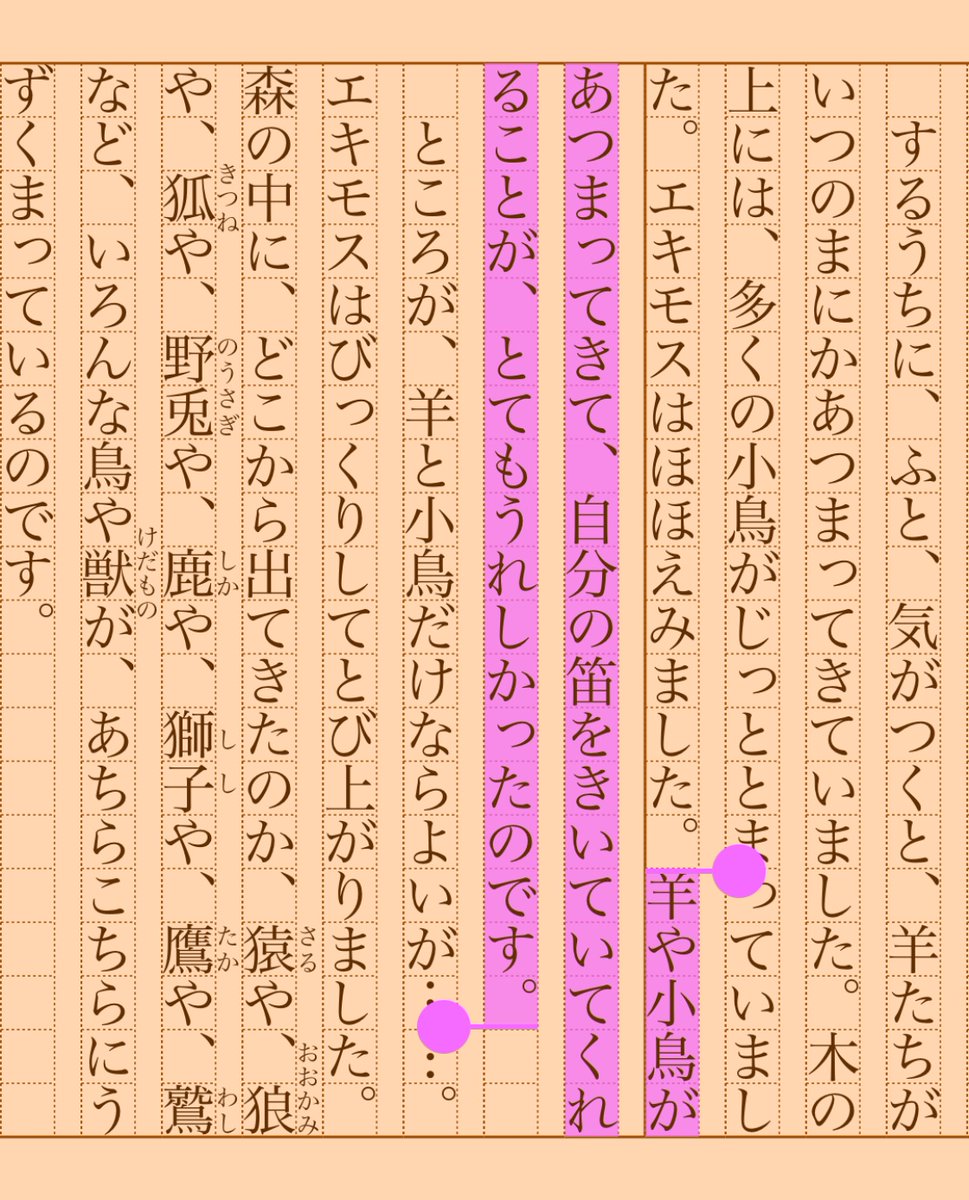 するうちに、ふと、気がつくと、羊たちが
いつのまにかあつまってきていました。木の
上には、多くの小鳥がじっととまっていまし
た。エキモスはほほえみました。羊や小鳥が
あつまってきて、自分の笛をきいていてくれ
ることが、とてもうれしかったのです。
ところが、羊と小鳥だけならよいが……。
エキモスはびっくりしてとび上がりました。
森の中に、どこから出てきたのか、猿や、狼
さる おおかみ
や、狐や、野兎や、鹿や、獅子や、鷹や、鷲
きつね のうさぎ しか しし たか わし
など、いろんな鳥や獣が、あちらこちらにう
けだもの
ずくまっているのです。